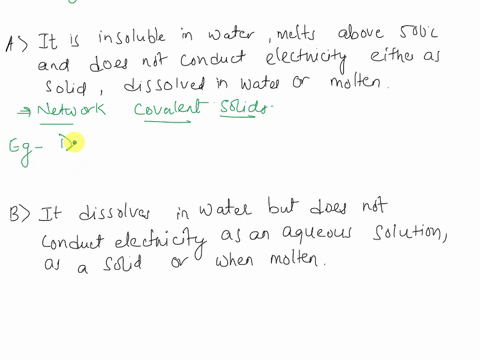 A> It is insoluble in water, melts above 500°C
and does not conduct electricity either as
solid, dissolved in water or molten.
⇒ Network Covalent Solids.
Eg- D
B> It dissolves in water but does not
conduct electricity as an aqueous solution,
as a solid or when molten.